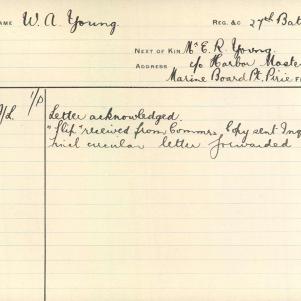 NAME W. A. Young. REG. &C 27th Bat
NEXT OF KIN Mr E. R. Young.
ADDRESS c/o Harbor Master
Marine Board Pt. Pirie
1/P Letter acknowledged.
"Slip" received from Commrs, Copy sent Inq
circular letter forwarded